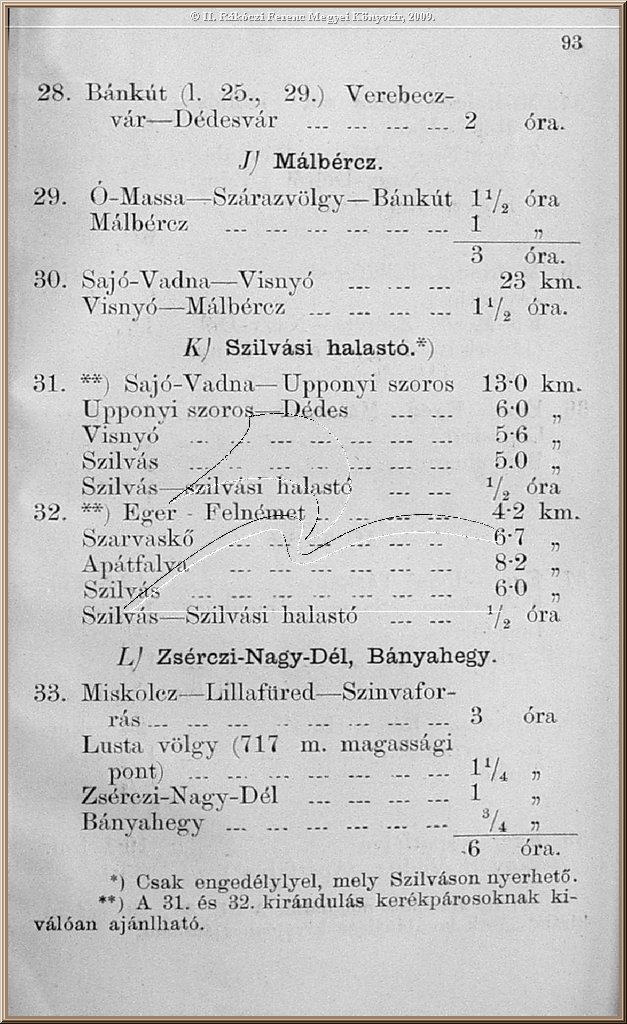 © II. Rákóczi Ferenc Megyei Könyvtár, 2009.
93
28. Bánkút (l. 25., 29.) Verebecz-
vár—Dédesvár ... ... ... ... 2 óra.
J) Málbércz.
29. Ó-Massa—Szárazvölgy—Bánkút 1 1/2 óra
Málbércz ... ... ... ... ... ... 1 „
3 óra.
30. Sajó-Vadna—Visnyó ... ... ... 23 km.
Visnyó—Málbércz ... ... ... ... 1 1/2 óra.
K) Szilvási halastó.*)
31. **) Sajó-Vadna—Upponyi szoros 13·0 km.
Upponyi szoros—Dédes ... ... 6·0 „
Visnyó ... ... ... ... ... ... ... 5·6 „
Szilvás ... ... ... ... ... ... ... 5.0 „
Szilvás—szilvási halastó ... ... 1/2 óra
32. **) Eger - Felnémet ... ... ... ... 4·2 km.
Szarvaskő ... ... ... ... ... ... 6·7 „
Apátfalva ... ... ... ... ... ... 8·2 „
Szilvás ... ... ... ... ... ... ... 6·0 „
Szilvás—Szilvási halastó ... ... 1/2 óra
L) Zsérczi-Nagy-Dél, Bányahegy.
33. Miskolcz—Lillafüred—Szinvafor-
rás ... ... ... ... ... ... ... ... 3 óra
Lusta völgy (717 m. magassági
pont) ... ... ... ... ... ... ... 1 1/4 „
Zsérczi-Nagy-Dél ... ... ... ... 1 „
Bányahegy ... ... ... ... ... ... 3/4 „
6 óra.
*) Csak engedélylyel, mely Szilváson nyerhető.
**) A 31. és 32. kirándulás kerékpárosoknak ki-
válóan ajánlható.